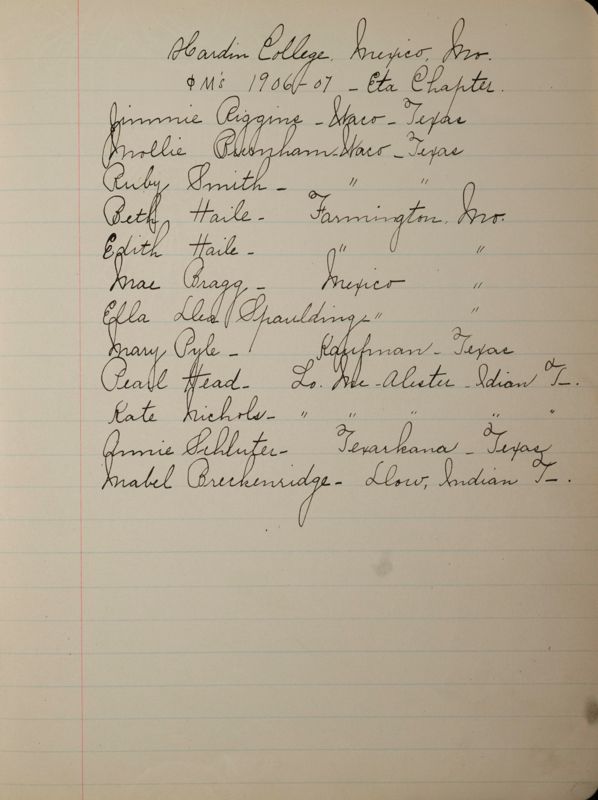 Hardin College, Mexico, Mo.
ΦM's 1906-07 - Eta Chapter.
Jimmie Riggins - Waco - Texas
Mollie Burnham - Waco - Texas
Ruby Smith - " "
Beth Haile - Farmington, Mo.
Edith Haile - " "
Mae Bragg - Mexico "
Ella Lea Spaulding " "
Mary Pyle - Kaufman - Texas
Pearl Head - So. Mc-Alester - Idian T-.
Kate Nichols - " " " " "
Annie Schluter - Texarkana - Texas
Mabel Breckenridge - Dow, Indian T-.